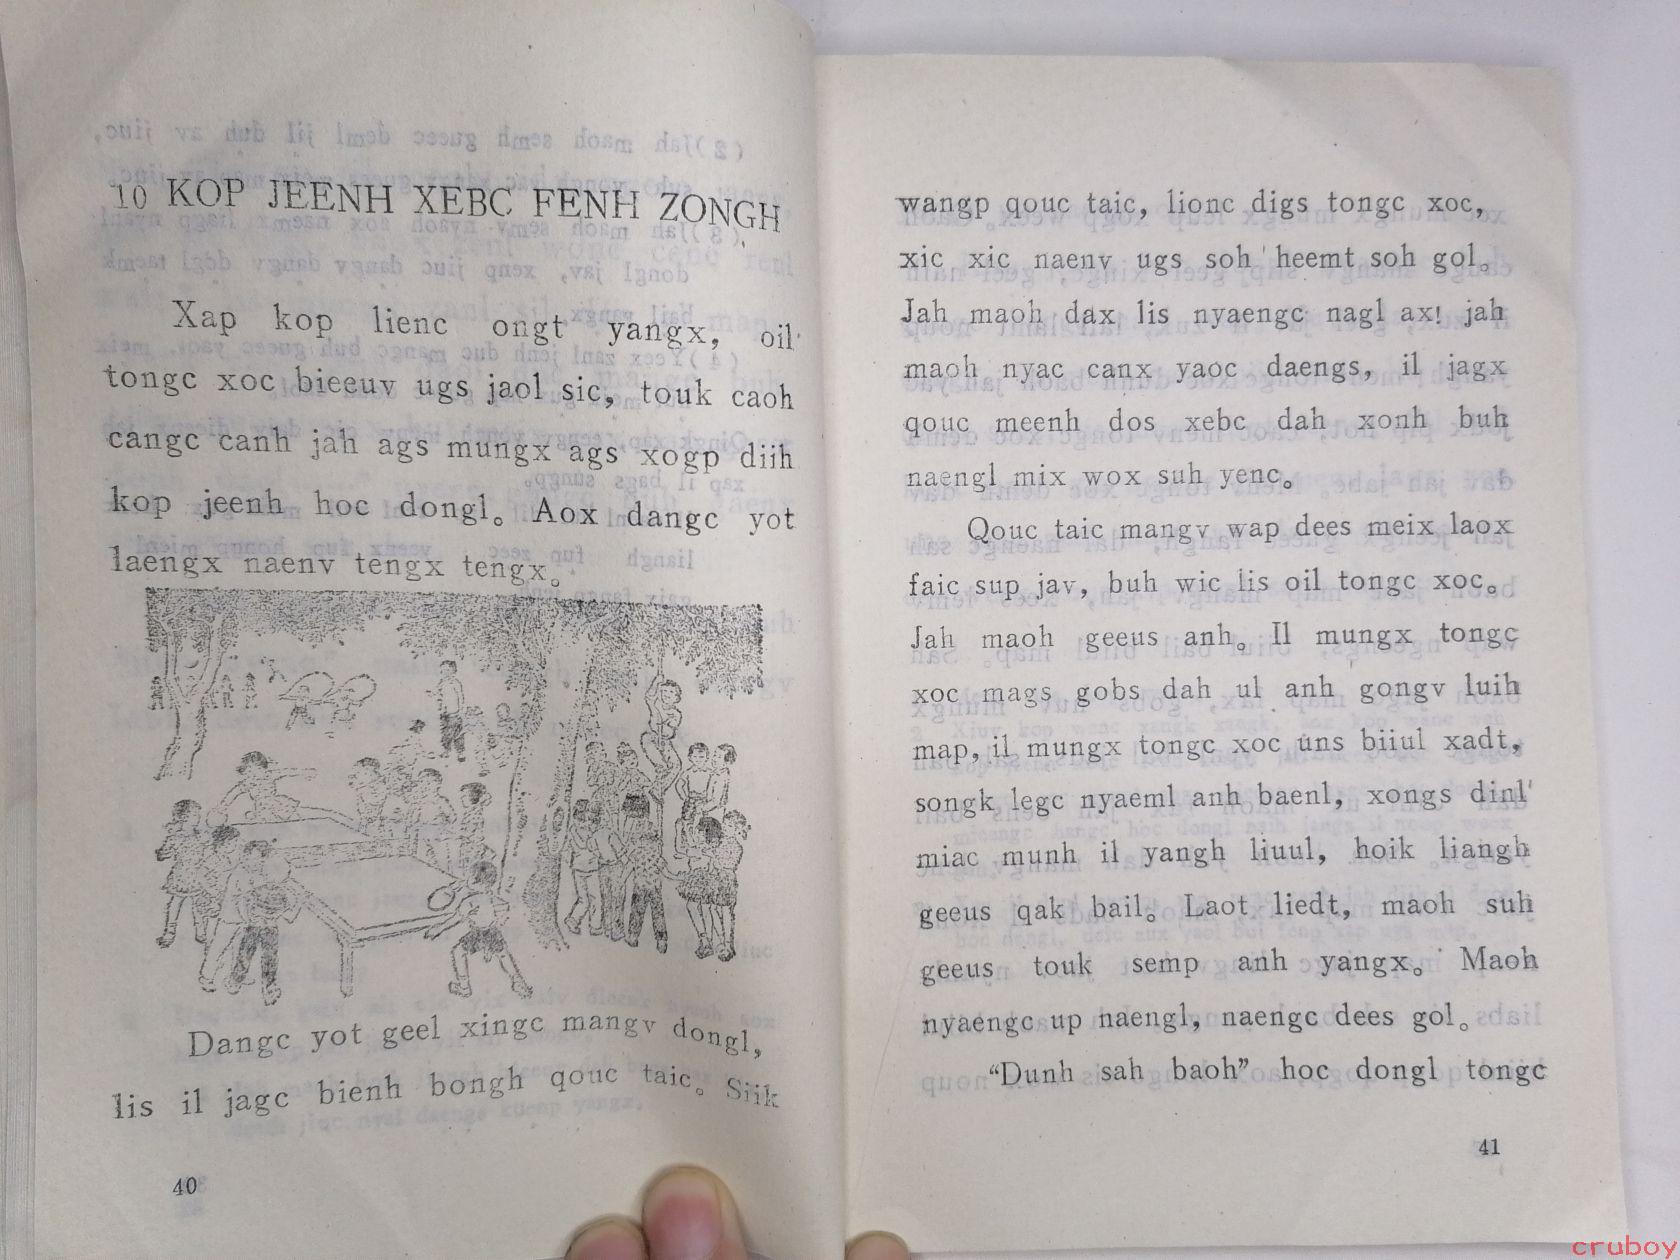 10 KOP JEENH XEBC FENH ZONGH
Xap kop lienc ongt yangx, oil
tongc xoc bieeuv ugs jaol sic, touk caoh
cangc canh jah ags mungx ags xogp diih
kop jeenh hoc dongl。 Aox dangc yot
laengx naenv tengx tengx。
Dangc yot geel xingc mangv dongl,
lis il jagc bienh bongh qouc taic。 Siik
40
wangp qouc taic, lionc digs tongc xoc,
xic xic naenv ugs soh heemt soh gol。
Jah maoh dax lis nyaengc nagl ax! jah
maoh nyac canx yaoc daengs, il jagx
qouc meenh dos xebc dah xonh buh
naengl mix wox suh yenc。
Qouc taic mangv wap dees meix laox
faic sup jav, buh wic lis oil tongc xoc。
Jah maoh geeus anh。 Il mungx tongc
xoc mags gobs dah ul anh gongv luih
map, il mungx tongc xoc uns biiul xadt,
songk legc nyaeml anh baenl, xongs dinl
miac munh il yangh liuul, hoik liangh
geeus qak bail。 Laot liedt, maoh suh
geeus touk semp anh yangx。 Maoh
nyaengc up naengl, naengc dees gol。
“Dunh sah baoh” hoc dongl tongc
41
cruboy